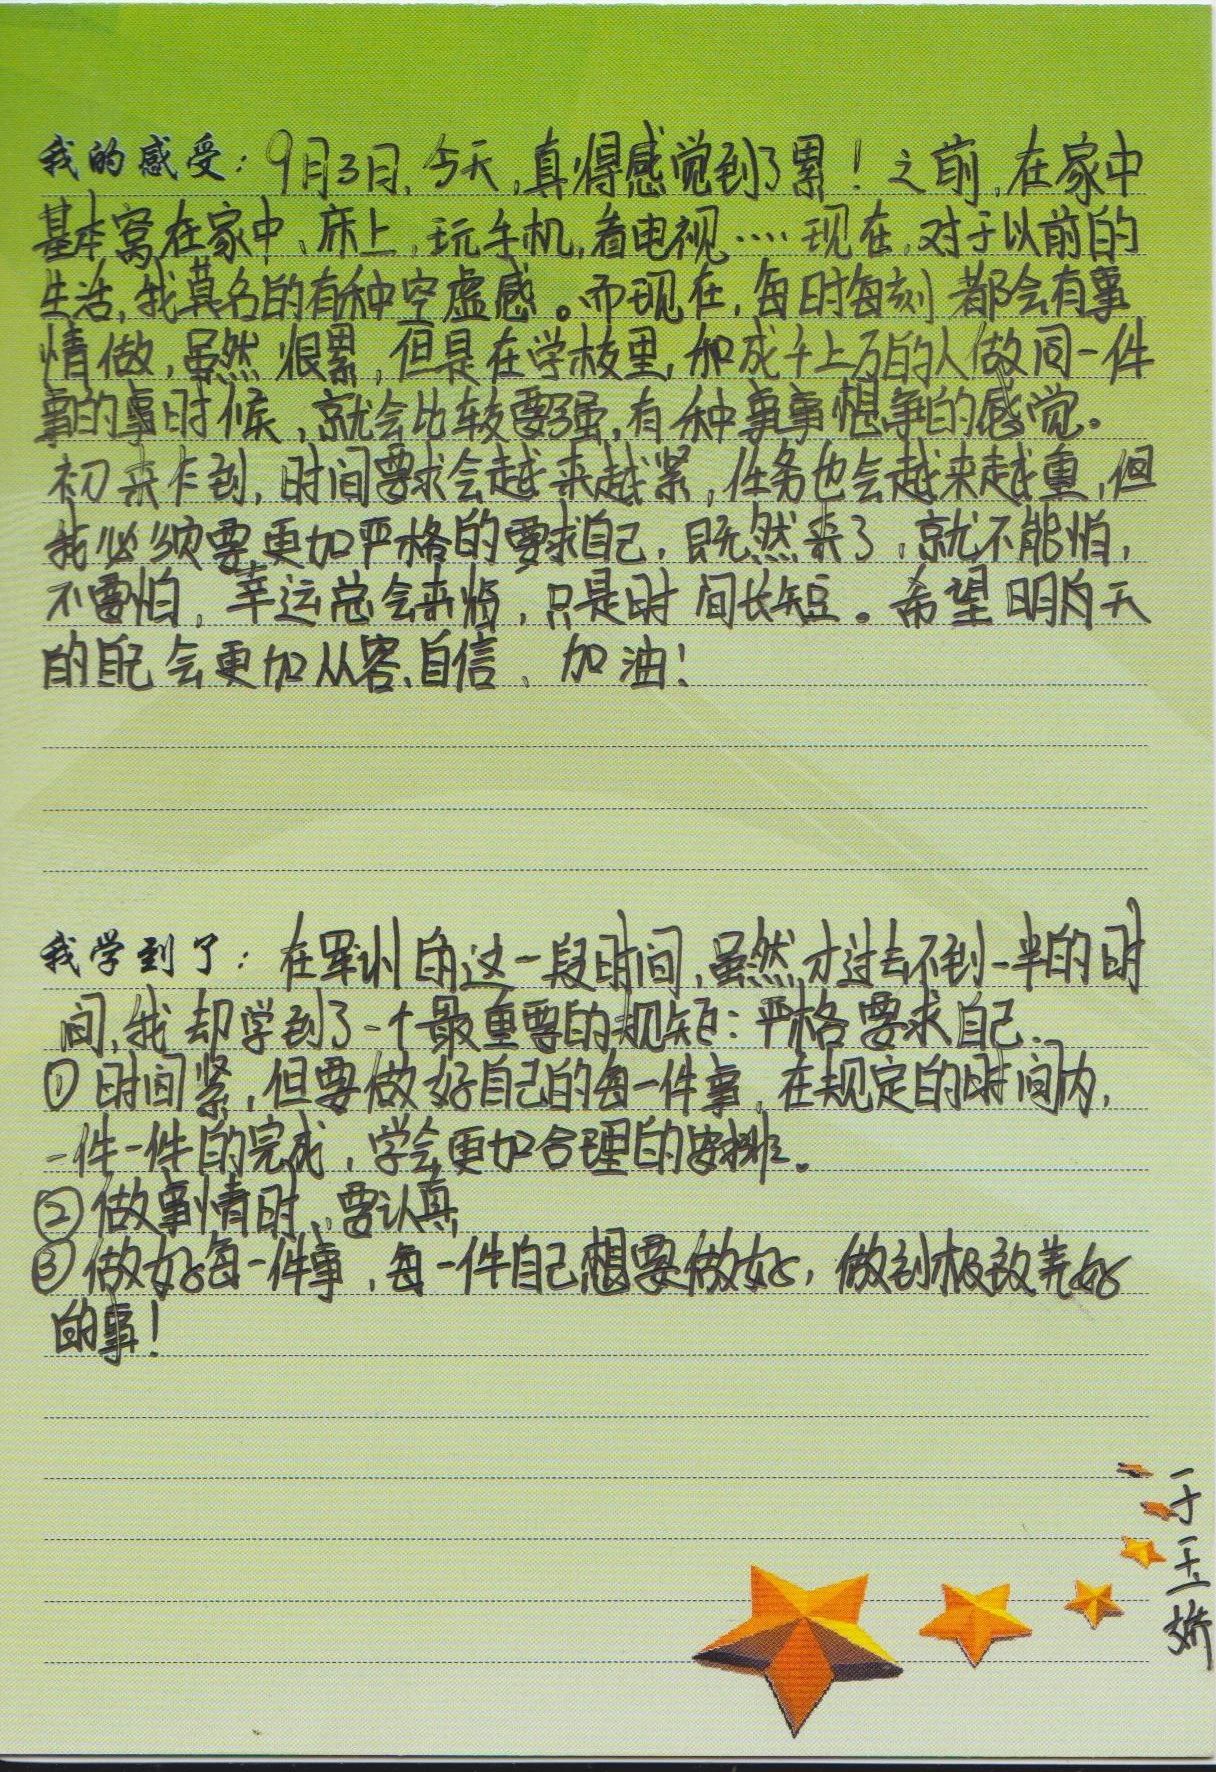 我的感受：9月3日，今天，真得感觉到了累！之前，在家中
基本窝在家中、床上，玩手机，看电视……现在，对于以前的
生活，我莫名的有种空虚感。而现在，每时每刻都会有事
情做，虽然很累，但是在学校里，和成千上万的人做同一件
事的事时候，就会比较要强，有种事事想争的感觉。
初来乍到，时间要求会越来越紧，任务也会越来越重，但
我必须要更加严格的要求自己，既然来了，就不能怕，
不要怕，幸运总会来临，只是时间长短。希望明天
的自己会更加从容、自信、加油！
我学到了：在军训的这一段时间，虽然才过去不到一半的时
间，我却学到了一个最重要的规矩：严格要求自己.
①时间紧，但要做好自己的每一件事，在规定的时间内，
一件一件的完成，学会更加合理的安排。
②做事情时，要认真
③做好每一件事，每一件自己想要做好，做到极致美好
的事！
于玉娇